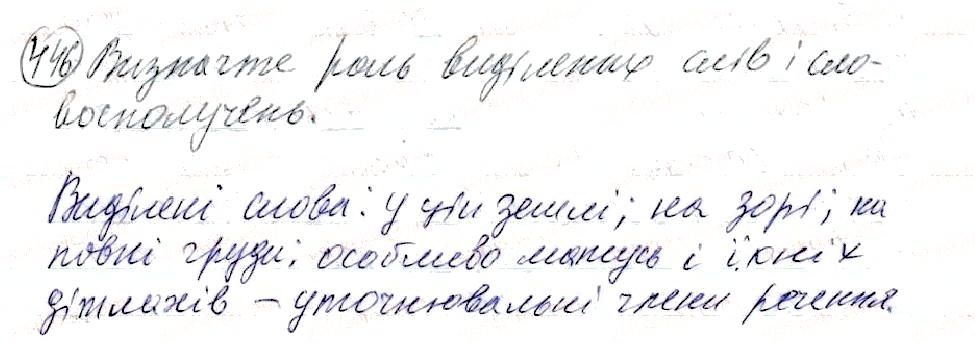 446 Визначте роль виділених слів і сло-
восполучень.
Виділені слова: у цій землі; на зорі; на
повні груди; особливо матусь і їхніх
дітлахів – уточнювальні члени речення.